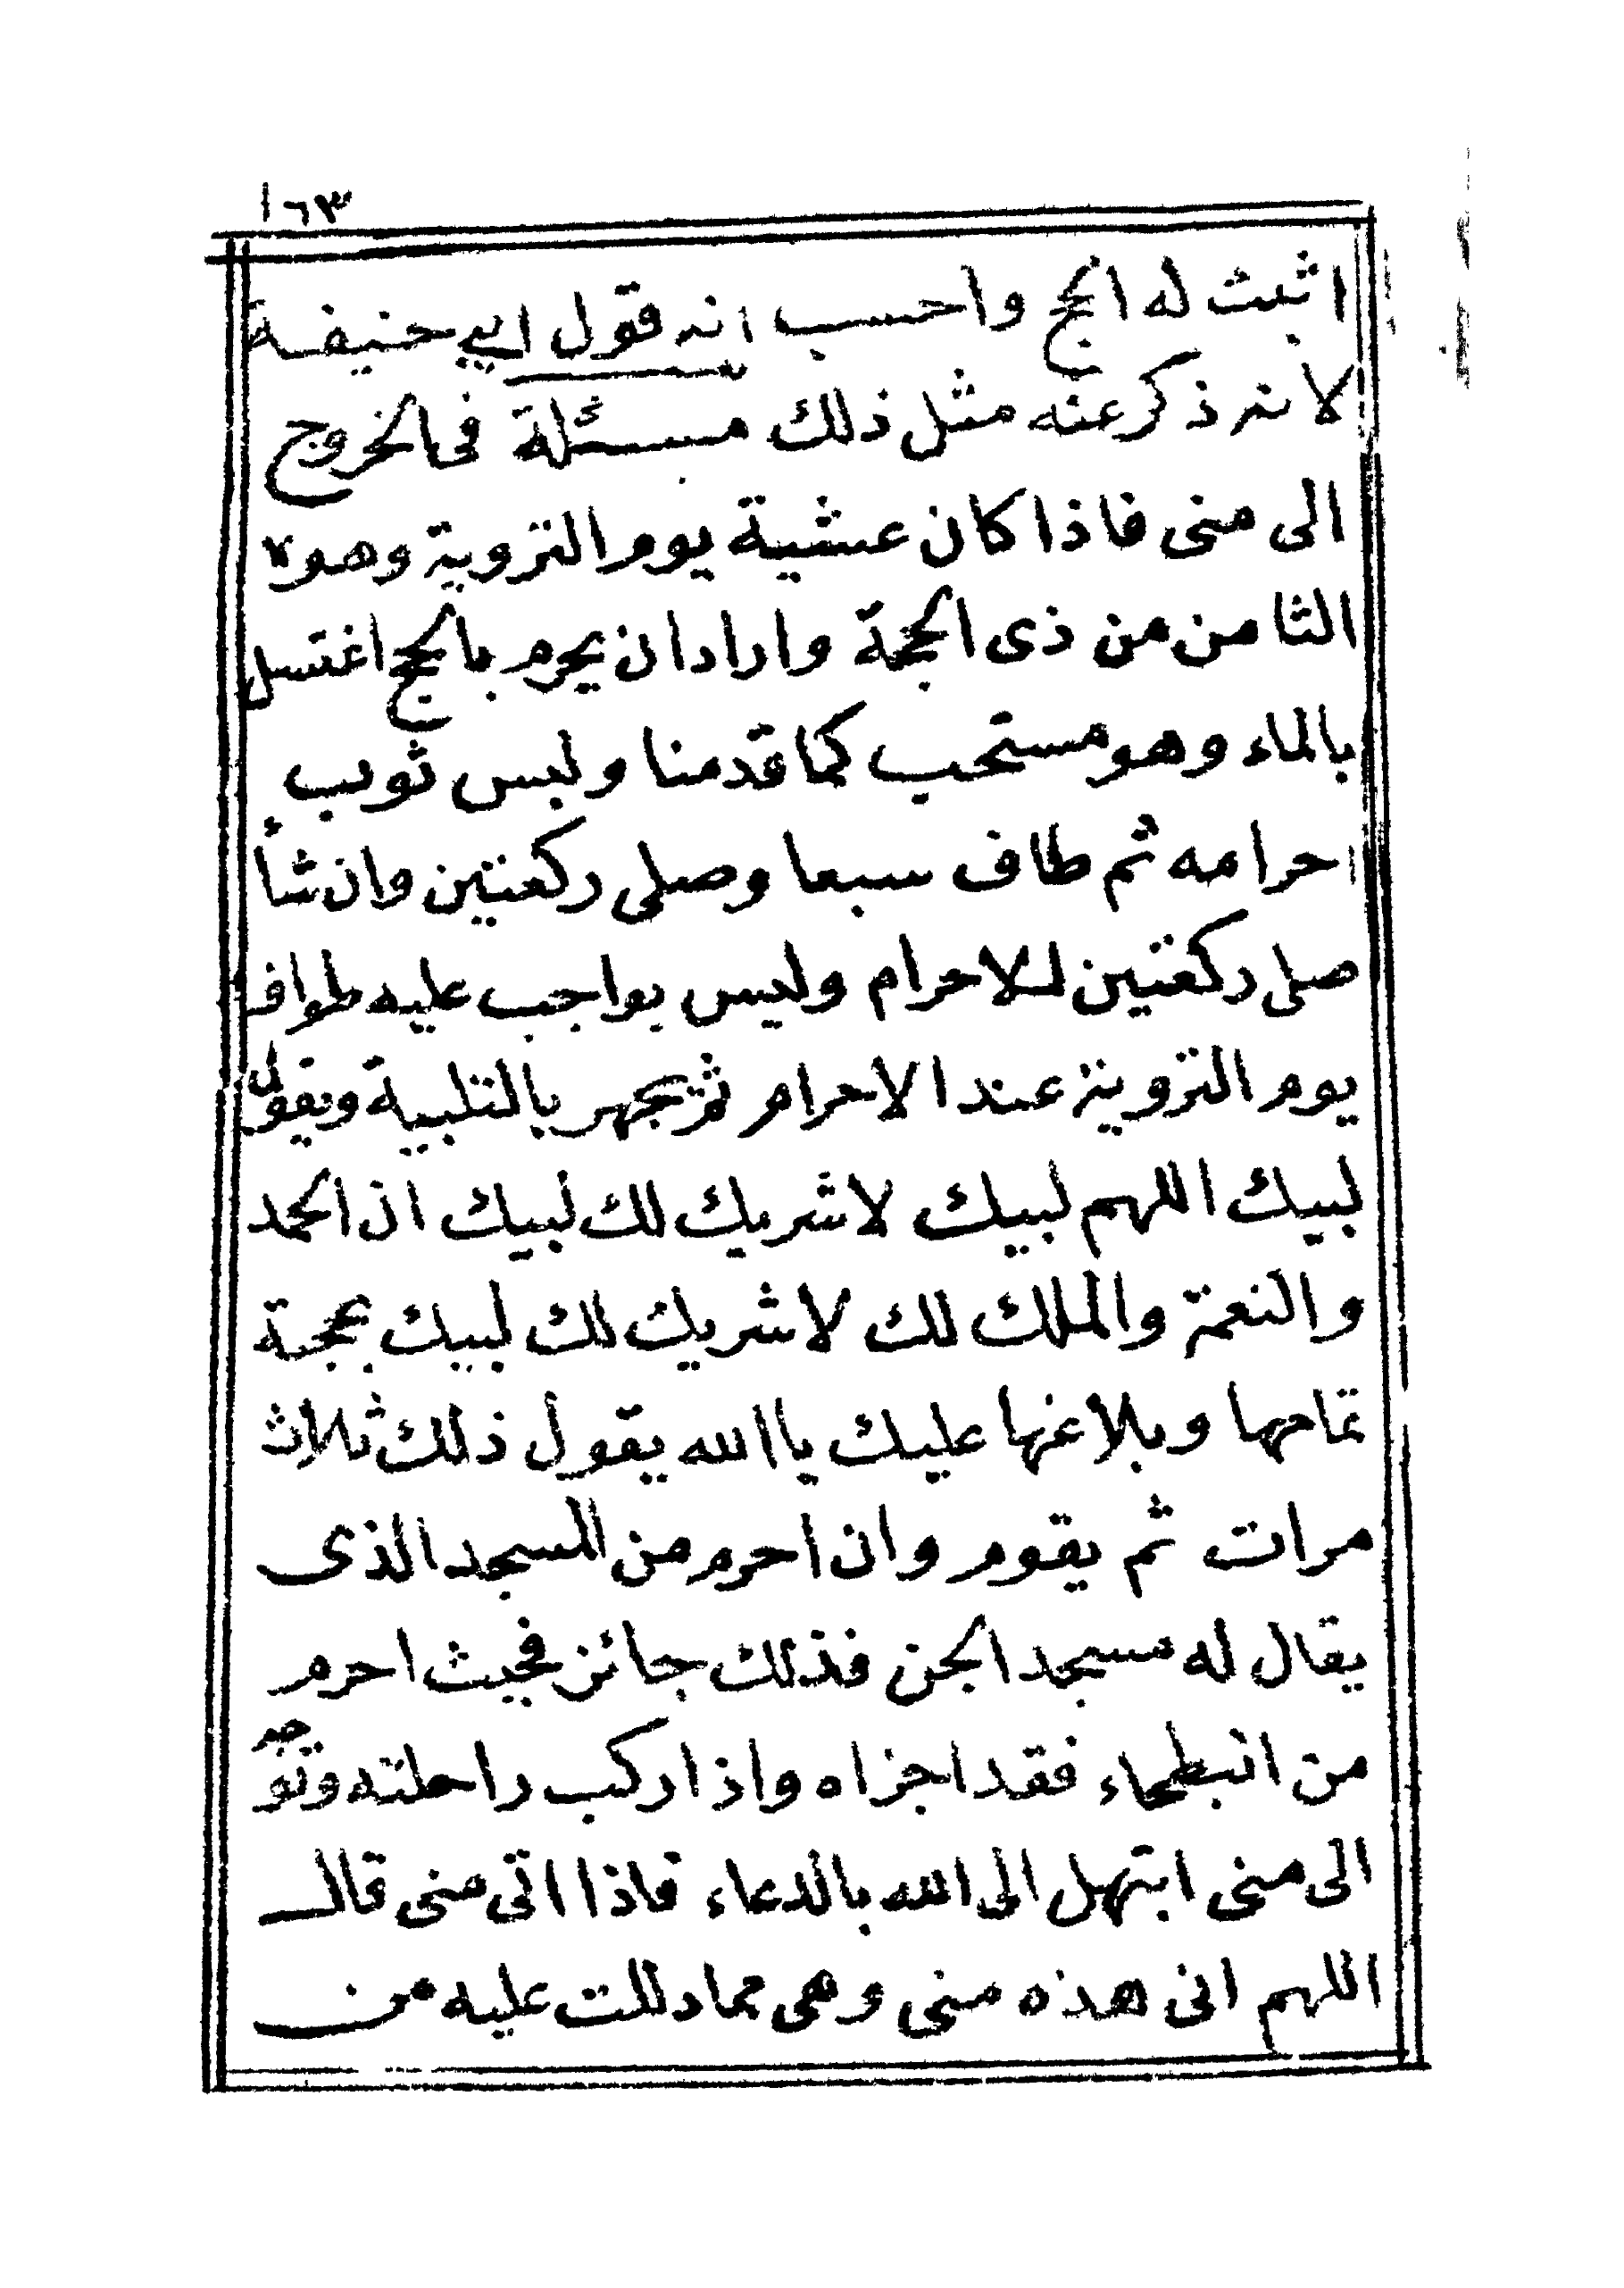 ١٦٣
اثبت له الحج واحسب انه قول ابي حنيفة
لانه ذكر عنه مثل ذلك مسئلة في الخروج
الى منى فاذا كان عشية يوم التروية وهو
الثامن من ذى الحجة واراد ان يحرم بالحج اغتسل
بالماء وهو مستحب كما قدمنا ولبس ثوبى
احرامه ثم طاف سبعا وصلى ركعتين وان شأ
صلى ركعتين للاحرام وليس بواجب عليه طواف
يوم التروية عند الاحرام ثم يجهر بالتلبية ويقول
لبيك اللهم لبيك لاشريك لك لبيك ان الحمد
والنعمة والملك لك لاشريك لك لبيك بحجة
تمامها وبلاغها عليك ياالله يقول ذلك ثلاث
مرات ثم يقوم وان احرم من المسجد الذى
يقال له مسجد الجن فذلك جائز فحيث احرم
من البطحاء فقد اجزاه واذا ركب راحلته وتوجه
الى منى ابتهل الى الله بالدعاء فاذا اتى منى قال
اللهم انى هذه منى وهى مما دللت عليه من